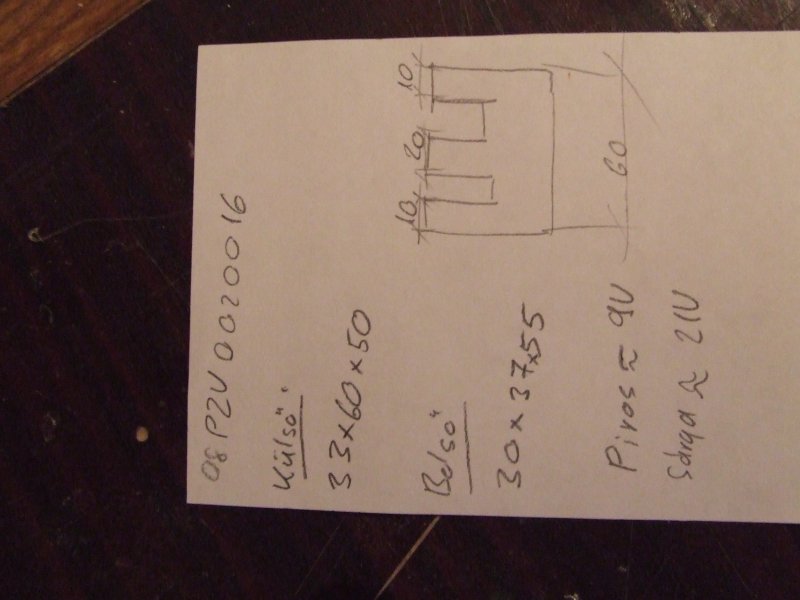 08PZV0020016
Külső:
33x60x50
Belső:
30x37x55
Piros ≈ 9V
Sárga ≈ 21V
10
20
10
60